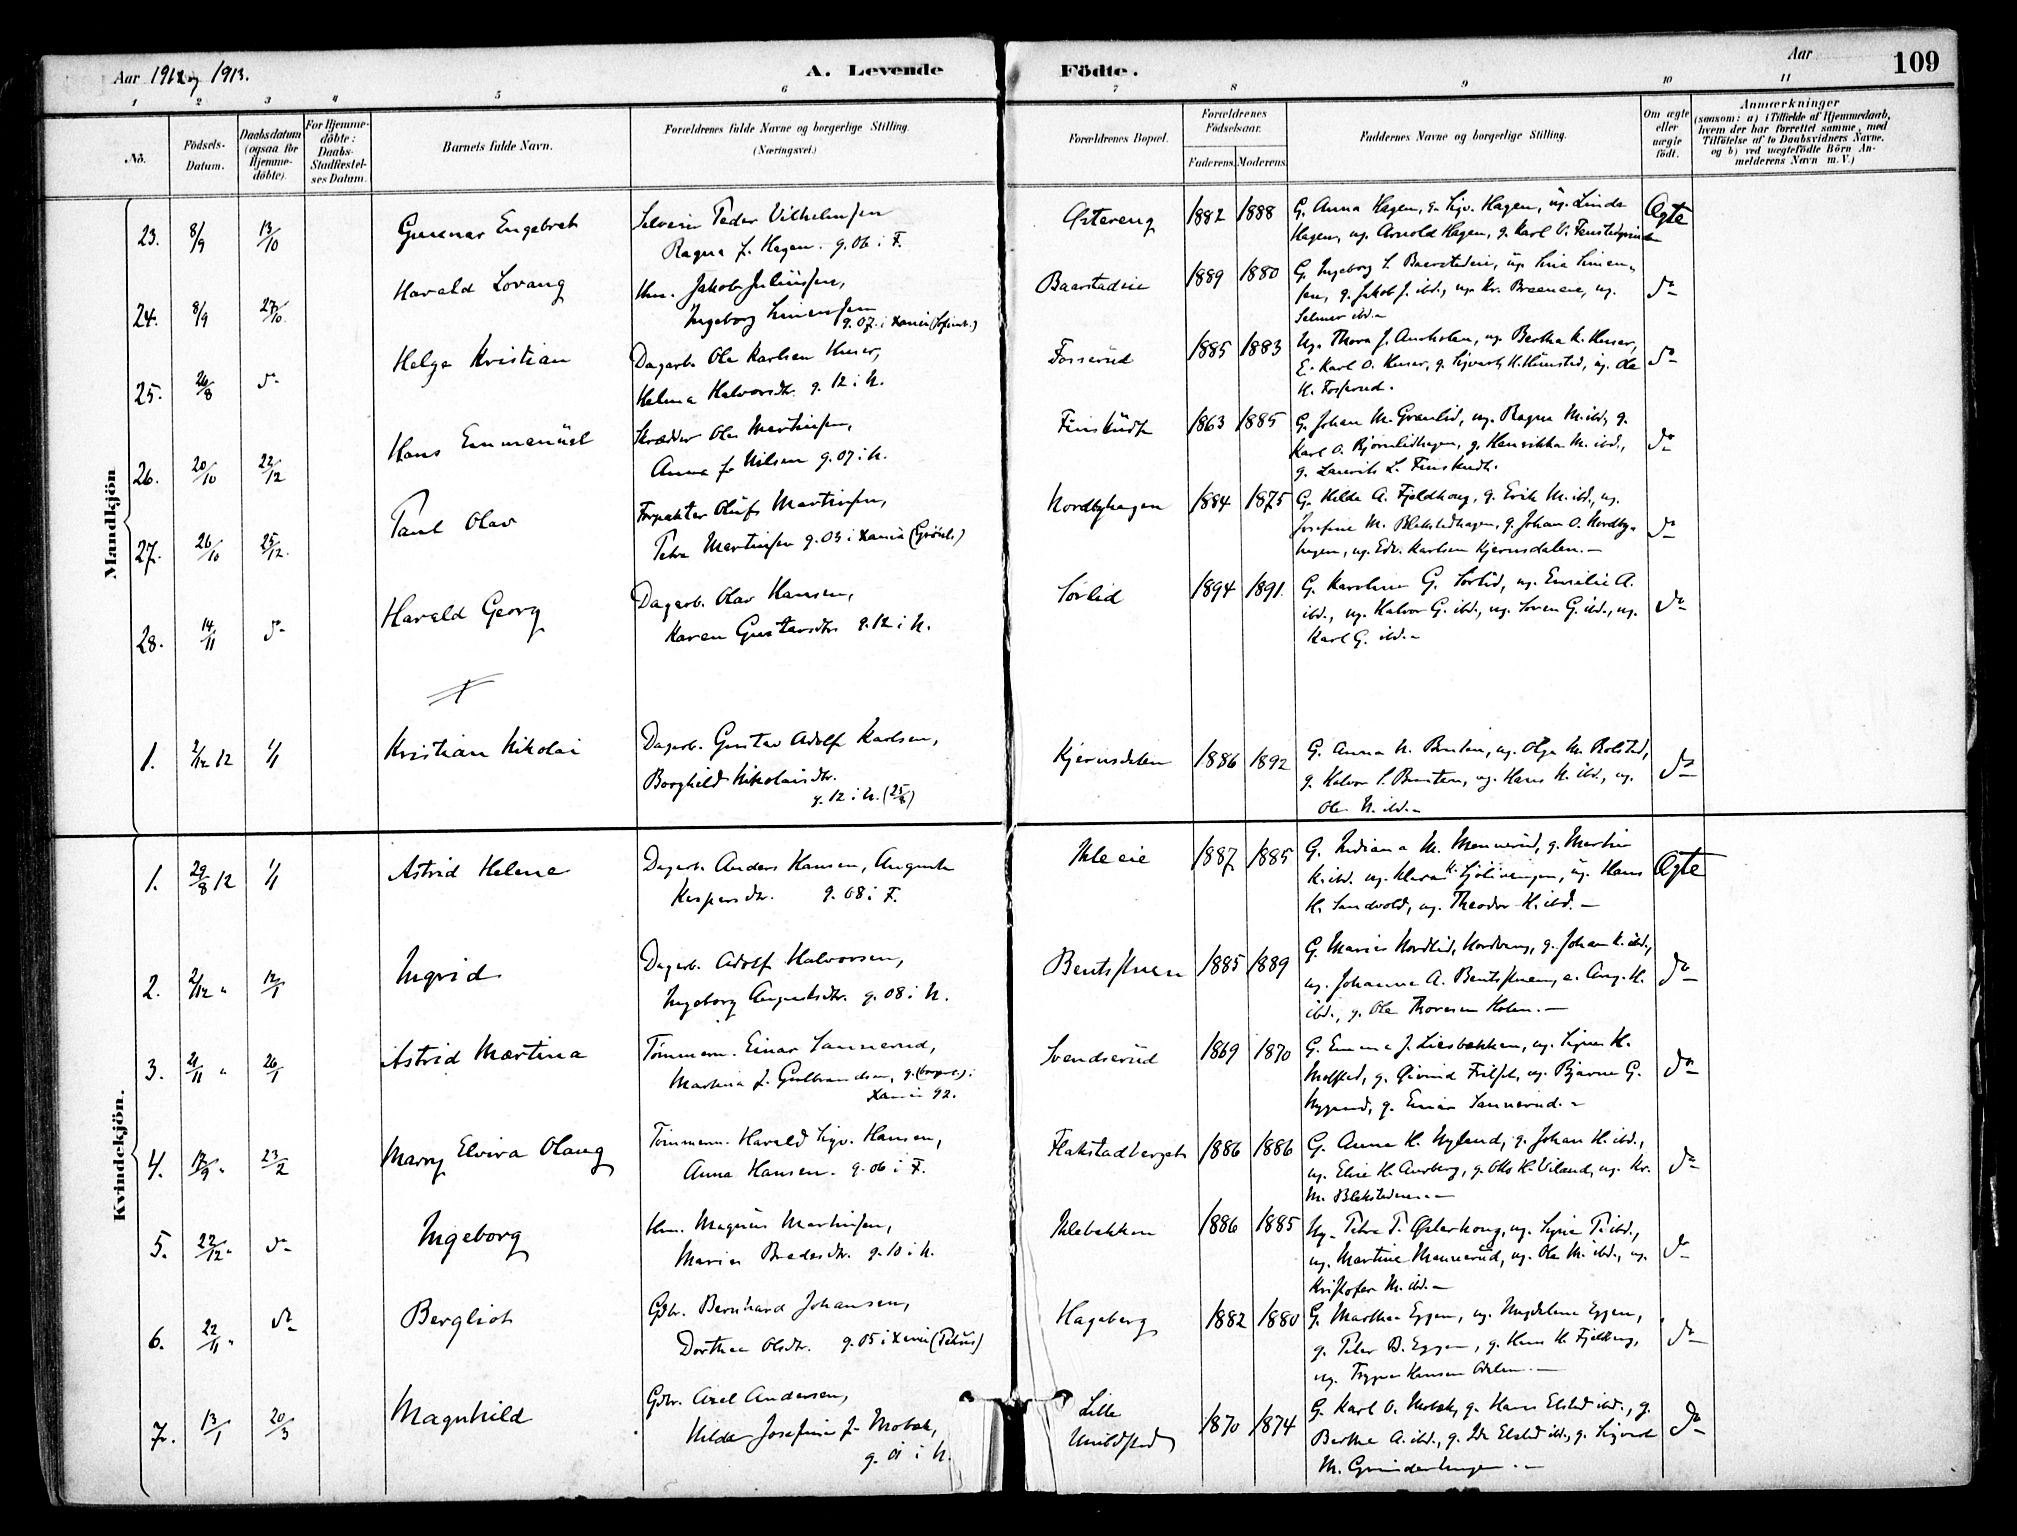 Aar 1912 og 1913.
A. Levende Födte.
Aar
109
1 2 3 4 5 6 7 8 9 10 11
No.
Födsels-Datum.
Daabsdatum (ogsaa for Hjemme-döbte).
For Hjemme-döbte: Daabs-Stadfæstel-ses Datum.
Barnets fulde Navn.
Forældrenes fulde Navne og borgerlige Stilling.
(Næringsvei.)
Forældrenes Bopæl.
Forældrenes Födselsaar.
Faderens. Moderens.
Faddernes Navne og borgerlige Stilling.
Om ægte eller uægte födt.
Anmærkninger
(saasom: a) i Tilfælde af Hjemmedaab,
hvem der har forrettet samme, med
Tilföielse af to Daabsvidners Navne.
og b) ved uægtefödte Börn An-
melderens Navn m. V.)
Mandkjön
23. 8/9 13/10 Gunnar Engebret
Severin Peder Vilhelmsen
Ragna f. Hagen. g. 06 i F.
Østereng 1882 1888
G. Anna Hagen, g. Sigv. Hagen, ug. Linda
Hagen, ug. Arnold Hagen, g. Karl V.
Ægte
24. 8/9 27/10 Harald Lovang
Hm. Jakob Juliussen,
Ingeborg Simensen
g. 07. i Xania (Sofienb.)
Baarstadeie 1889 1880
G. Ingeborg S. Baarstadeie, ug. Lina Simen-
sen, g. Jakob J. ibd., ug. Kr. Braenene, ug.
Selmer ibd. –
do
25. 26/8 do Helge Kristian
Dagarb. Ole Karlsen Huser,
Helma Halvorsdtr. g. 12 i N.
Fosserud 1885 1883
Ug. Thora J. Aasholen, ug. Bertha K. Huser,
E. Karl O. Huser, g. Sigvart K. Himstad, ug. Ole
H. Fosserud.
do
26. 20/10 22/12 Hans Emmanuel
Skrædder Ole Martinsen,
Anna f. Nilsen g. 07 i N.
Finskudt 1863 1885
G. Johan M. Granlid, ug. Ragna M. ibd., g.
Karl O. Bjørnlidhagen, g. Henrikka M. ibd.,
g. Laurits L. Finskudt.
do
27. 26/10 25/12. Paul Olav
Forpakter Oluf Martinsen,
Petra Martinsen g. 03 i Xania (Grönl.)
Nordbyhagen 1884 1875
G. Hilda A. Fjeldhoug, g. Erik M. ibd., ug.
Josefine M. Blekstadhagen, g. Johan O. Nordby-
hagen, ug. Edv. Karlsen Kjernsdalen. –
do
28. 14/11 do Harald Georg
Dagarb. Olav Hansen,
Karen Gustavsdtr. g. 12 i N.
Sørlid 1894 1891.
G. Karoline G. Sørlid, ug. Emilie A.
ibd., ug. Halvor G. ibd., ug. Soren G. ibd., ug.
Karl G. ibd. –
do
1. 2/12 12 1/1 Kristian Nikolai
Dagarb. Gustav Adolf Karlsen,
Borghild Nikolaisdtr.
g. 12 i N. (25/8)
Kjernsdalen 1886 1892
G. Anna N. Braaten, ug. Olga M. Bolstad,
g. Halvor S. Braaten, ug. Hans N. ibd., ug.
Ole N. ibd. –
do
Kvindekjön.
1. 29/8 12 1/1 Astrid Helene
Dagarb. Anders Hansen, Augusta
Kaspersdtr. g. 08 i F.
Ihleeie 1887 1885
G. Indiana M. Mennerud, g. Martin
K. ibd. ug. Klara K. Sjölivingen, ug. Hans
H. Sandvold, ug. Theodor H. ibd. –
Ægte
2. 2/12 " 12/1 Ingrid
Dagarb. Adolf Halvorsen,
Ingeborg Augustsdtr. g. 08 i N.
Bentsstuen 1885 1889
G. Marie Nordlid, Nordvang, g. Johan K. ibd.,
ug. Johanna A. Bentsstuen, e. Aug. H.
ibd., g. Ole Thoresen Holen. –
do
3. 21/11 " 26/1 Astrid Martina
Tømmerm. Einar Sannerud,
Martina f. Gulbrandsen, g. (borgerl.) i
Xania 92.
Svendserud 1869 1870
G. Emma J. Liesbakken, ug. Signe H.
Molstad, g. Øivind Frilset, ug. Bjarne G.
Nygaard, g. Einar Sannerud. –
do
4. 12/9 " 23/2 Marry Elvira Olaug
Tømmerm. Harald Sigv. Hansen,
Anna Hansen. g. 06 i F.
Flakstadberget 1886 1886
G. Anna H. Nyland, g. Johan H. ibd.,
ug. Elise H. Aurberg, g. Otto K. Viland, ug. Kr.
M. Blekstadeie. –
do
5. 22/12 " do Ingeborg
Hm. Magnus Martinsen,
Marie Bredesdtr. g. 10 i N.
Ihlebakken 1886 1885
Ug. Petra T. Østerhoug, ug. Signe T. ibd.,
ug. Martine Mennerud, ug. Ole M. ibd., ug.
Kristofer M. ibd. –
do
6. 22/11 " do Bergliot
Gbr. Bernhard Johansen,
Dorthea Olsdtr. g. 05 i Xania (Petrus)
Hageberg 1882 1880
G. Marthea Eggen, ug. Magdalena Eggen,
g. Peter B. Eggen, g. Hans H. Fjeldberg,
ug. Trygve Hansen Dalen. –
do
7. 13/1 20/3 Magnhild
Gbr. Axel Andersen,
Hilda Josefine f. Mobæk,
g. 01 i N.
Lille Umildstad 1870 1874
G. Karl O. Mobæk, g. Hans Elstad ibd., g.
Berthe A. ibd., g. Ida Elstad ibd., g. Sigvart
M. Grinderhagen. –
do